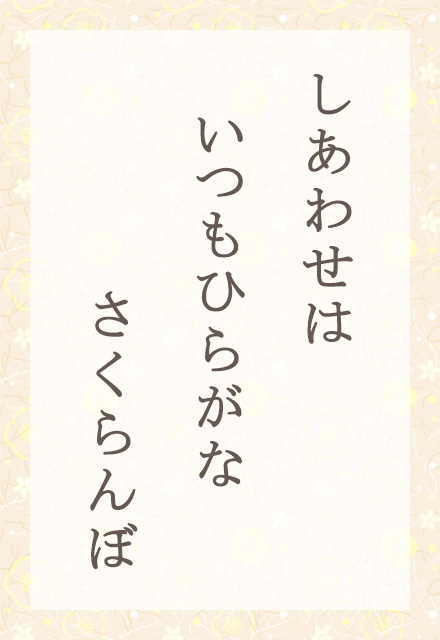 しあわせは
いつもひらがな
さくらんぼ